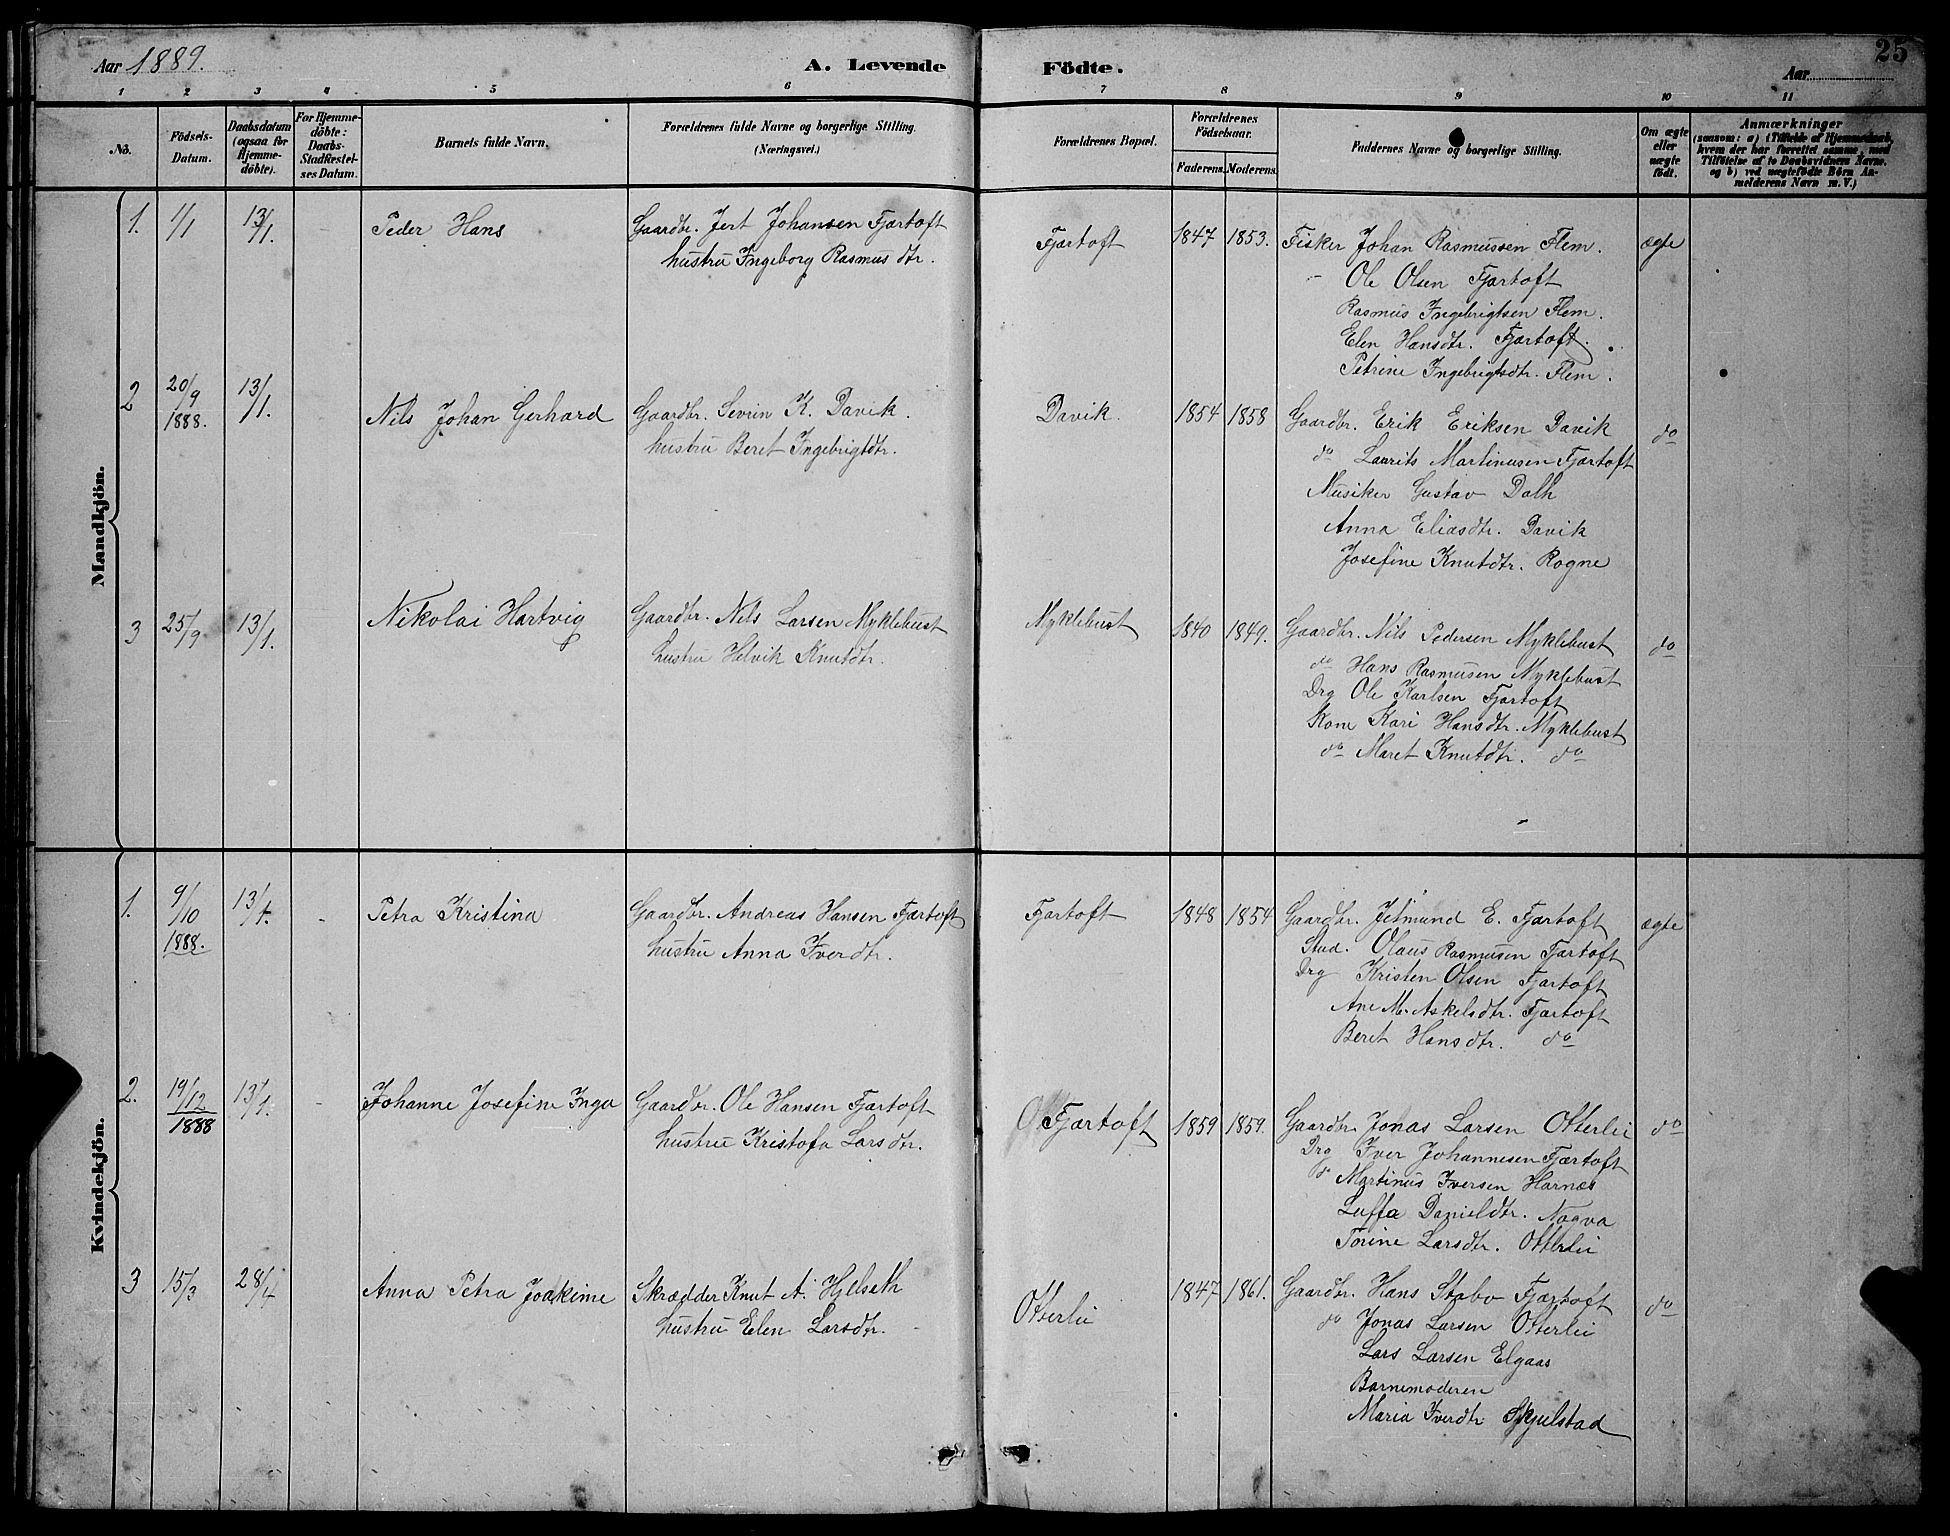 Aar 1889.
A. Levende Födte.
Aar
25
1 2 3 4 5 6 7 8 9 10 11
No.
Födsels-Datum.
Daabsdatum (ogsaa for Hjemme-döbte).
For Hjemme-döbte: Daabs-Stadfæstel-ses Datum.
Barnets fulde Navn.
Forældrenes fulde Navne og borgerlige Stilling. (Næringsvei.)
Forældrenes Bopæl.
Forældrenes Födselsaar.
Faderens. Moderens.
Faddernes Navne og borgerlige Stilling.
Om ægte eller uægte født.
Anmærkninger
(saasom: a) i Tilfælde af Hjemmedaab, hvem der har forrettet samme, med Tilföielse af to Daabsvidners Navne, og b) ved uægtefödte Börn An-melderens Navn m. V.)
Mandkjön.
1. 1/1 13/1. Peder Hans
Gaardbr. Jert Johansen Fjærtoft
hustru Ingeborg Rasmusdtr.
Fjærtoft 1847 1853.
Fisker Johan Rasmussen Flem. ægte
- Ole Olsen Fjærtoft
Rasmus Ingebrigtsen Flem.
Elen Hansdtr. Fjærtoft.
Petrine Ingebrigtsdtr. Flem.
2 20/9 1888. 13/1. Nils Johan Gerhard
Gaardbr. Sevrin K. Davik.
hustru Beret Ingebrigtdtr.
Davik. 1854 1858
Gaardbr. Erik Eriksen Davik do
do Laurits Martinusen Fjærtoft
Musiker Gustav Dalh
Anna Eliasdtr. Davik
Josefine Knutdtr. Rogne
3 25/9 13/1. Nikolai Hartvig
Gaardbr. Nils Larsen Myklebust
hustru Helvik Knutdtr.
Myklebust 1840 1849.
Gaardbr. Nils Pedersen Myklebust do
do Hans Rasmusen Myklebust
Drg Ole Karlsen Fjærtoft
Kone Kari Hansdtr. Myklebust
do Maret Knutdtr. do
Kvindekjön.
1. 9/10 1888. 13/1. - Petra Kristina
Gaardbr. Andreas Hansen Fjærtoft
hustru Anna Iverdtr.
Fjærtoft 1848 1854
Gaardbr. Jetmund E. Fjærtoft ægte
Stud. Olaus Rasmusen Fjærtoft
Drg Kristen Olsen Fjærtoft
Ane M. Askelsdtr. Fjærtoft
Beret Hansdtr. do
2. 19/12 1888 13/1. - Johanne Josefine Inga
Gaardbr. Ole Hansen Fjærtoft
hustru Kristofa Larsdtr.
Fjærtoft 1859 1859.
Gaardbr. Jonas Larsen Otterlei do
Drg Iver Johannesen Fjærtoft
do Martinus Iversen Harnæs
Luffa Danieldtr. Nogva
Torine Larsdtr. Otterlei
3 15/3 28/4 Anna Petra Joakime
Skrædder Knut A. Hjelseth
hustru Elen Larsdtr. -
Otterlei 1847 1861.
Gaardbr. Hans Stabo Fjærtoft do
do Jonas Larsen Otterlei
Lars Larsen Elgaas
Barnemoderen
Maria Iverdtr Skjelstad